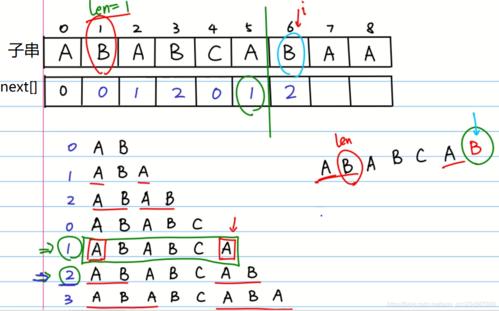 len=1
i
0 1 2 3 4 5 6 7 8
子串 A B A B C A B A A
next[] 0 0 1 2 0 1 2
0 A B
1 A B A
2 A B A B
0 A B A B C
1 A B A B C A
2 A B A B C A B
3 A B A B C A B A
len
A B A B C A B